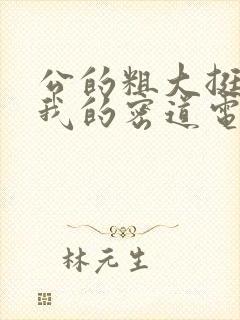 公的粗大挺
我的密道电
林元生